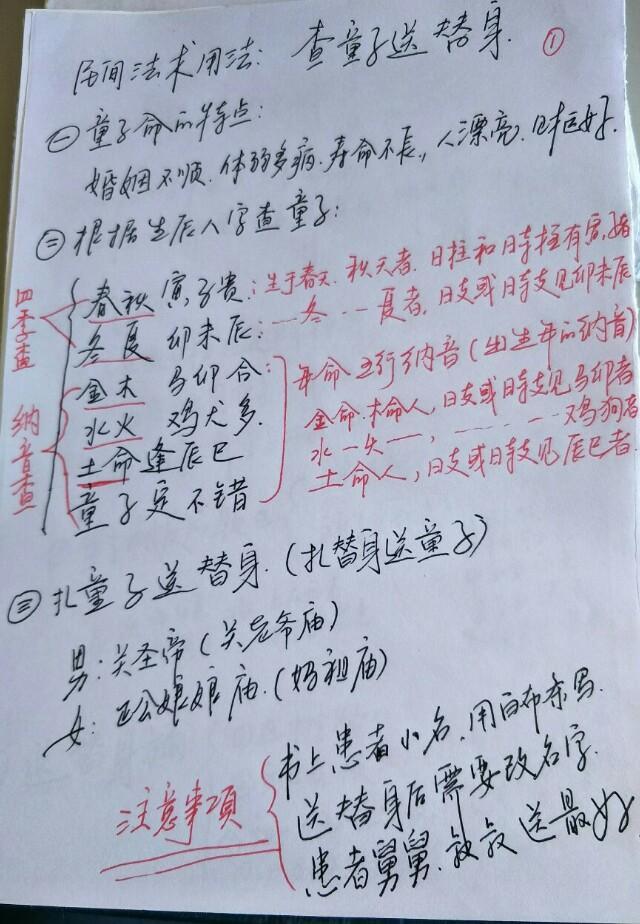 民间法术用法: 查童子送替身. ①
㊀童子命的特点:
婚姻不顺. 体弱多病. 寿命不长,, 人漂亮.
㊁根据生辰八字查童子:
四季查
春秋 寅子贵: 生于春天. 秋天者. 日柱和时柱有寅,子者
冬夏 卯未辰: 一冬一夏者, 日支或日时支见卯未辰
纳音查
金木 马卯合: 年命五行纳音(出生年的纳音)
金命. 木命人, 日支或日时支见马卯者
水火 鸡犬多. 水一火一, ------ 鸡狗者
土命逢辰巳 土命人, 日支或日时支见辰巳者.
童子定不错
㊂扎童子送替身. (扎替身送童子)
男: 关圣帝(关老爷庙)
女: 娘娘庙. (妈祖庙)
注意事項
书上患者小名, 用白布
送替身后需要改名字.
患者舅舅. 叔叔送最好